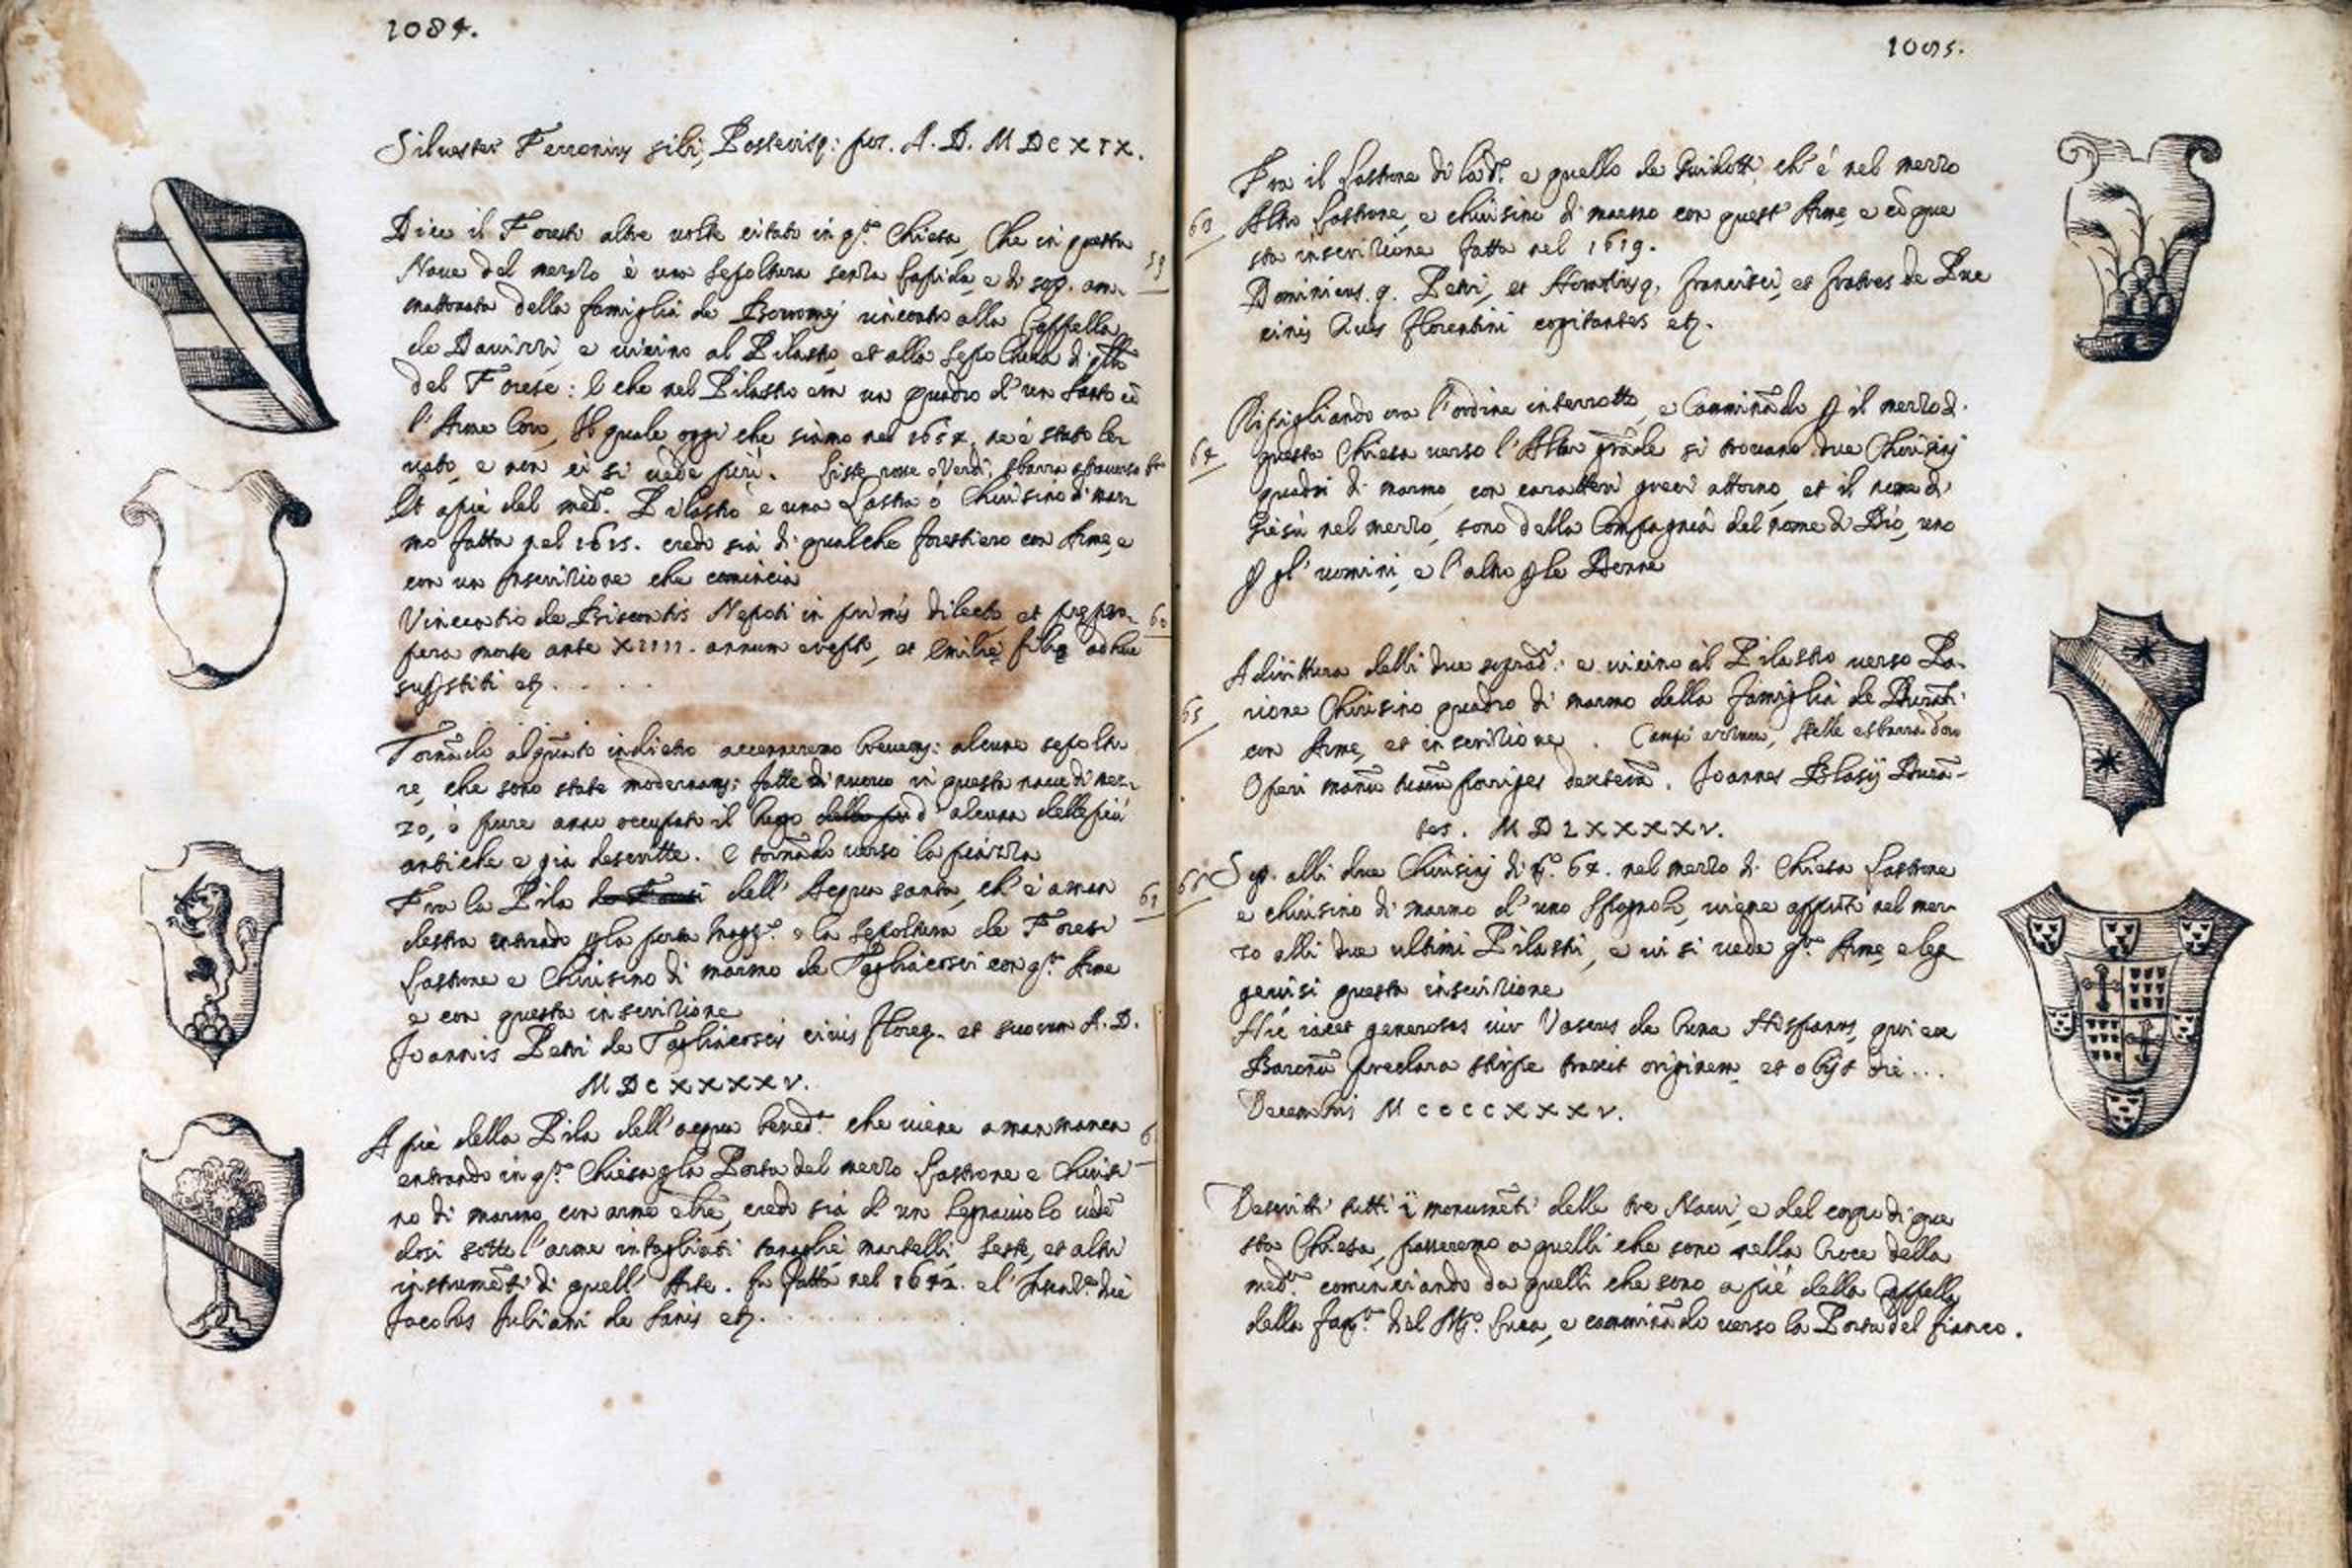 1084.
Silvester Ferronius sibi, Posterisq: pos. A. D. MDCXIX.
Dice il Foresi altre volte citato in q.ta Chiesa, che in questa
Nave del mezzo è una sepoltura senza lapida, e di sop.a am-
mattonata della famiglia de Borromei rincontro alla Cappella
de Davizzi, e vicino al Pilastro, et alla sepoltura di
del Forese: e che nel Pilastro era un quadro d'un Santo cō
l'Arme loro, Il quale oggi che siamo nel 1657. ne è stato le-
vato, e non ci si vede più. liste rosse e Verdi, sbarra attraverso
Et a piè del med.o Pilastro è una Lastra ò Chiusino di mar-
mo fatta nel 1615. credo sia di qualche forestiero con Arme, e
con un Inscrizione che comincia
Vincentio de Nepoti in primis dilecto, et prepro-
pera morte ante XIIII. annum erepto, et Emilie filie adhuc
superstiti etc. . . . .
Tornādo alquāto indietro accenneremo brevem: alcune sepoltu-
re, che sono state modernam: fatte di nuovo in questa nave di mez-
zo, ò pure anno occupato il luogo d'alcuna delle più
antiche e già descritte. E tornādo verso la piazza
Fra la Pila dell'Acqua santa, ch'è a man
destra entrando p la porta magg.re e la sepoltura de Foresi
Lastrone e Chiusino di marmo de Tagliacosci con q.ta Arme
e con questa inscrizione
Joannis Petri de Tagliacoscis civis Floren. et suorum A. D.
MDCXXXXV.
A piè della Pila dell'acqua bened.a che viene a man manca
entrando in q.ta Chiesa p la Porta del mezzo Lastrone e Chiusi-
no di marmo con arme e credo sia d'un legnaiuolo vedē
dosi sotto l'arme intagliati tanaglie martelli, seste, et altri
instrumēti di quell'Arte. fu fatta nel 1642. e l'Inscriz.e dice
Jacobus Juliani de Sanis etc. . . . . . .
59
60
61
6
1085.
Fra il lastrone di la d.o e quello de Guidotti ch'è nel mezzo
Altro lastrone, e chiusino di marmo con quest'Arme, e cō que
sta inscrizione fatta nel 1619.
Dominicus q. Petri, et Horatius q. Francisci, et fratres de Puc
cinis Cives Florentini cogitantes etc.
Ripigliando ora l'ordine interrotto, e Camminādo p il mezzo di
questa Chiesa verso l'Altar grāde si trovano due Chiusini
quadri di marmo, con caratteri greci attorno, et il nome di
Giesù nel mezzo, sono della Compagnia del nome di Dio, uno
p gl'uomini, e l'altro p le Donne
A dirittura delli due soprad.i e vicino al Pilastro verso Pa-
rione Chiusino quadro di marmo della famiglia de Burati
con Arme, et inscrizione. Campo azzurro, stelle e sbarra d'oro
Operi manū tuarū porriges dexterā. Joannes Blasij Burā-
tes. MDLXXXXV.
Sop.a alli due Chiusini di n.o 64. nel mezzo di Chiesa Lastrone
e chiusino di marmo d'uno Spagnolo, viene appūto nel mez-
zo alli due ultimi Pilastri, e vi si vede q.ta Arme, e leg-
gevisi questa inscrizione
Hic iacet generosus vir Vascus de Cuna Hispanus, qui ex
Baronū preclara stirpe traxit originem, et obijt die . . .
Decembris MCCCCXXXV.
Descritti tutti i monumēti delle tre Navi, e del corpo di que
sta Chiesa, passeremo a quelli che sono nella Croce della
med.a cominciando da quelli che sono a piè della Cappella
della fam.a del S. Luca, e camminādo verso la Porta del fianco.
63
64
65
66